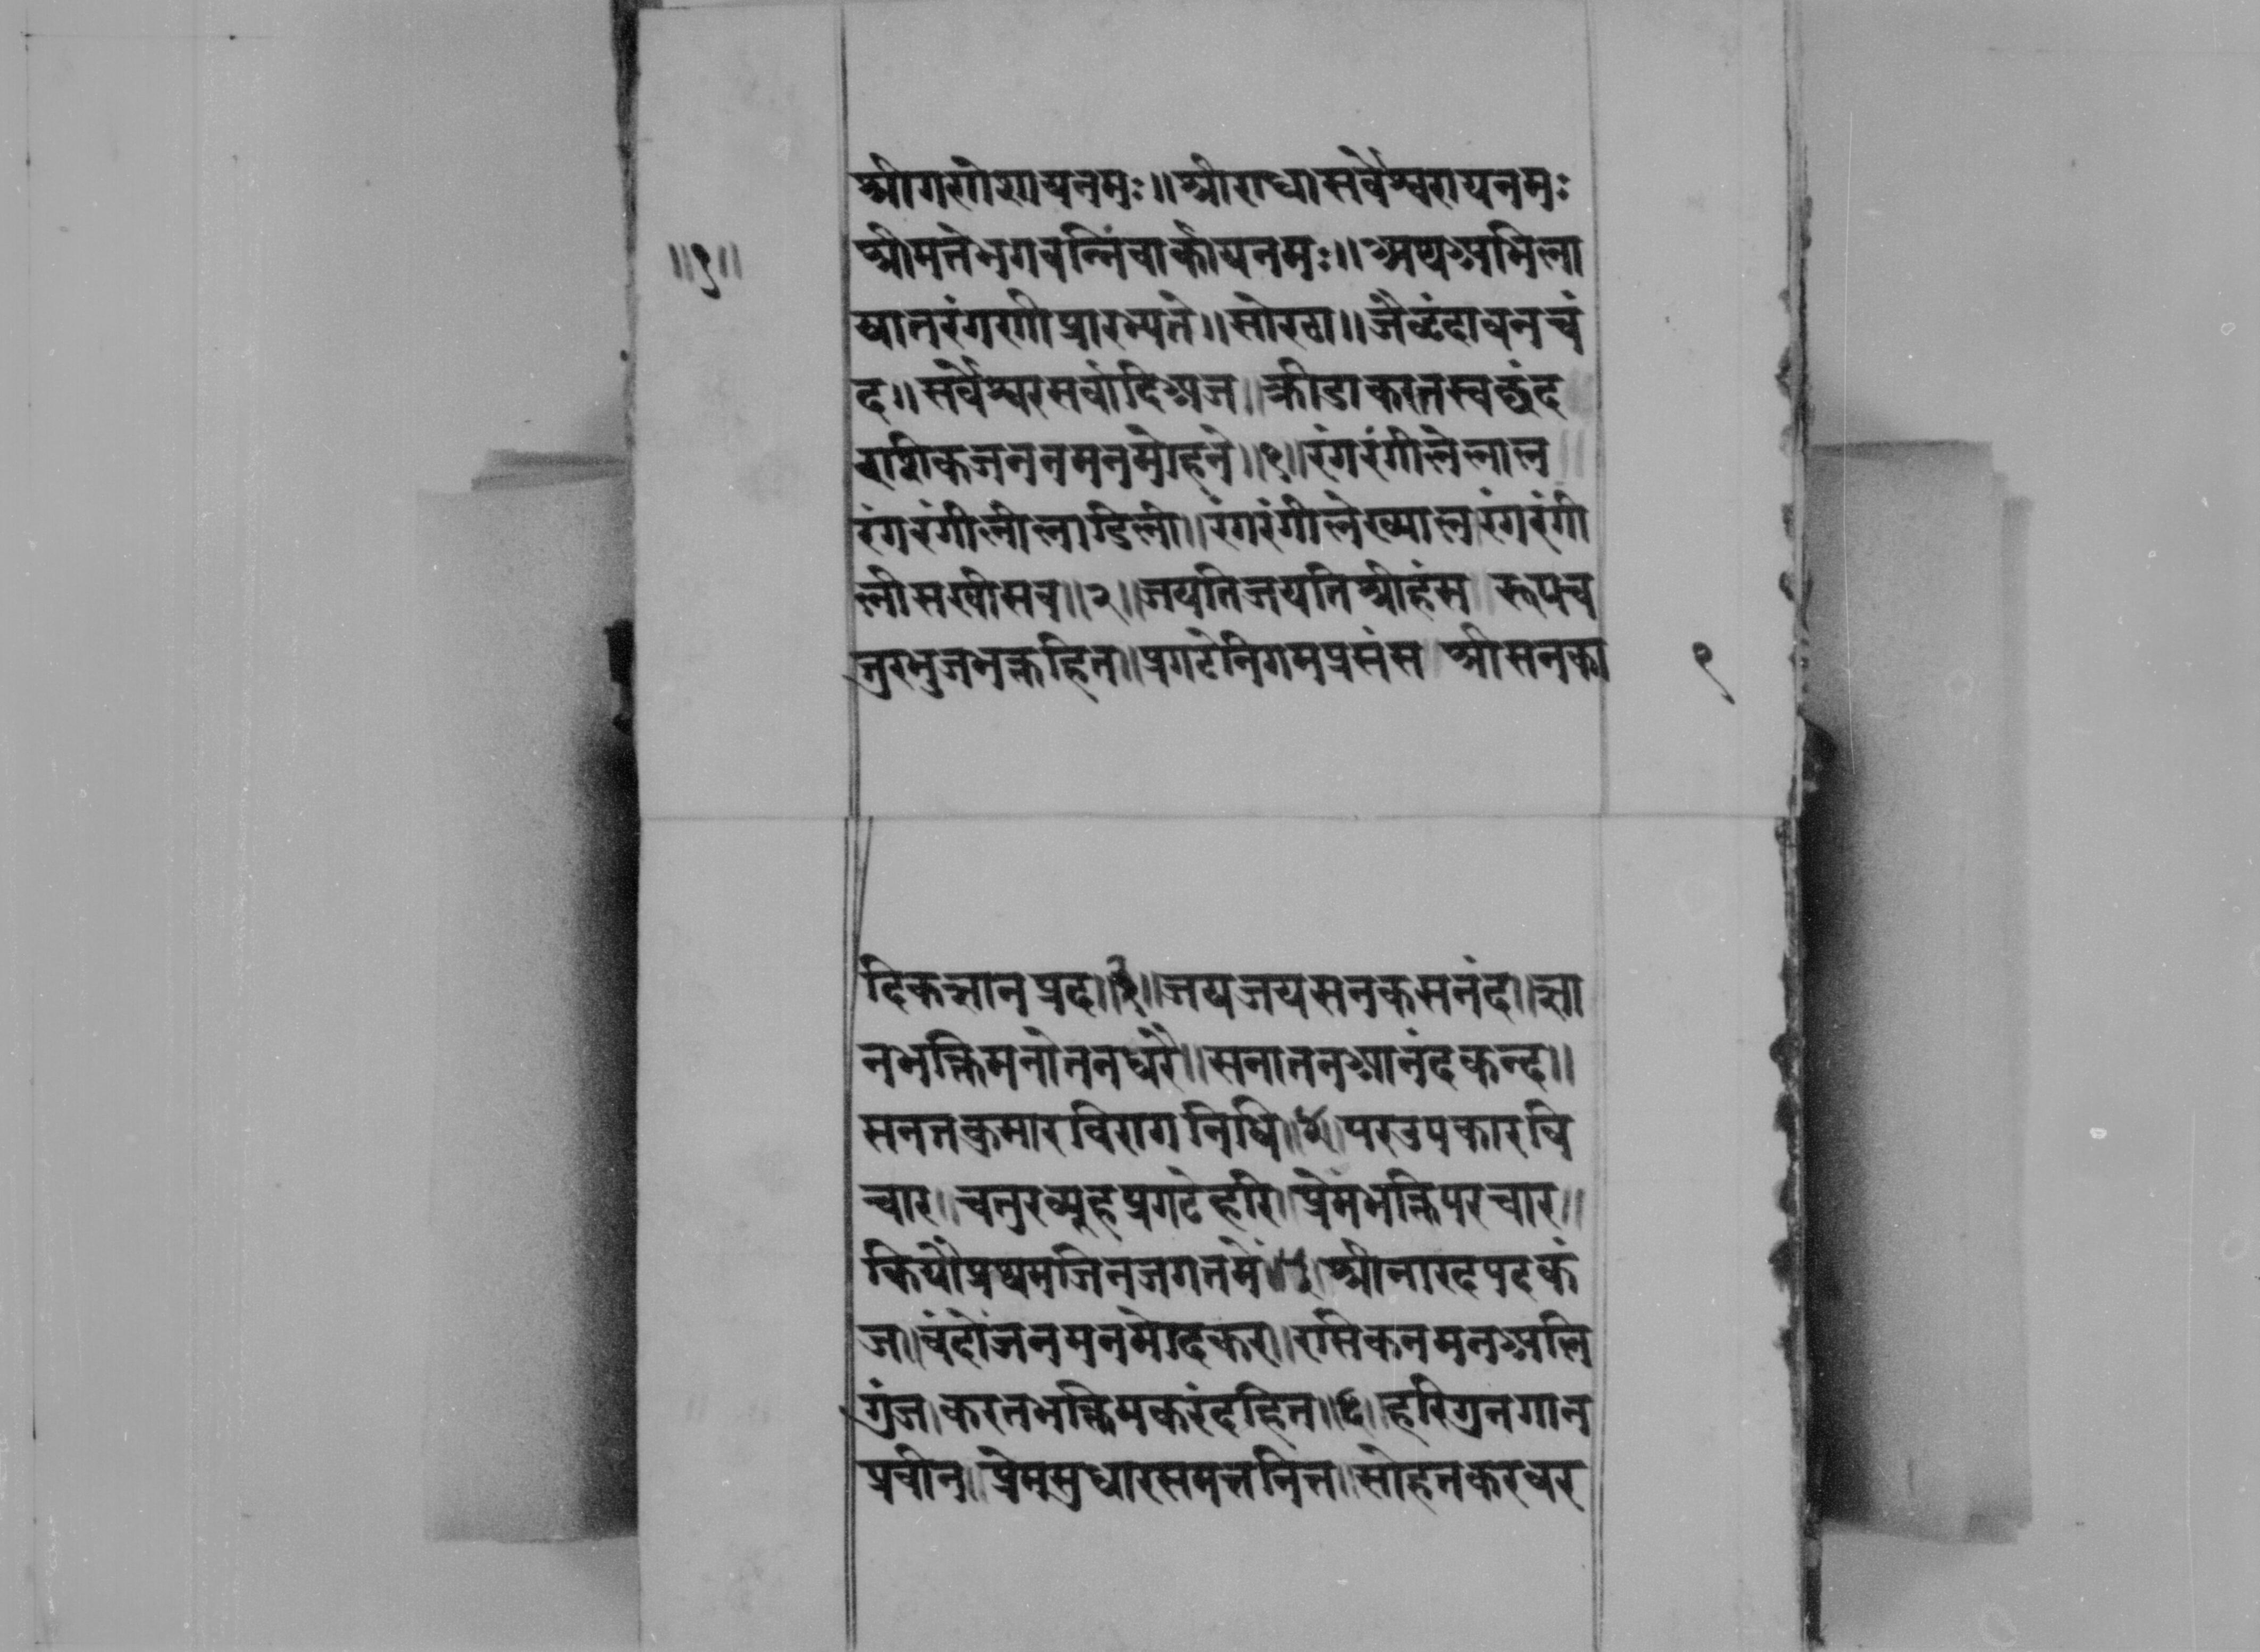 श्रीगणेशायनमः॥श्रीराधासर्वेश्वरायनमः
॥१॥ श्रीमतेभगवन्निंवार्कायनमः॥अथअभिला
षातरंगणीप्रारभ्यते॥सोरठा॥जैवृंदावनचं
द॥सर्वेश्वरसर्वादिअज॥क्रीडाकरतस्वछंद
राशिकजननमनमोहने॥१॥रंगरंगीलेलाल॥
रंगरंगीलीलाडिली॥रंगरंगीलेख्याल।रंगरंगी
लीसखीसव॥२॥जयतिजयतिश्रीहंस॥रूपच
तुरभुजभक्तहित॥प्रगटेनिगमप्रसंस॥श्रीसनका
१
दिकज्ञानप्रद॥३॥जयजयसनकसनंद॥ज्ञा
नभक्तिमनोतनधरै॥सनातनआनंदकन्द॥
सनतकुमारविरागनिधि॥४॥परउपकारवि
चार॥चतुरव्यूहप्रगटेहरि॥प्रेमभक्तिपरचार॥
कियौप्रथमजिनजगतमें॥५॥श्रीनारदपदकं
ज॥वंदोंजनमनमोदकर॥रसिकनमनअलि
गुंज॥करतभक्तिमकरंदहित॥६॥हरिगुनगान
प्रवीन॥प्रेमसुधारसमत्तनित॥सोहतकरवर